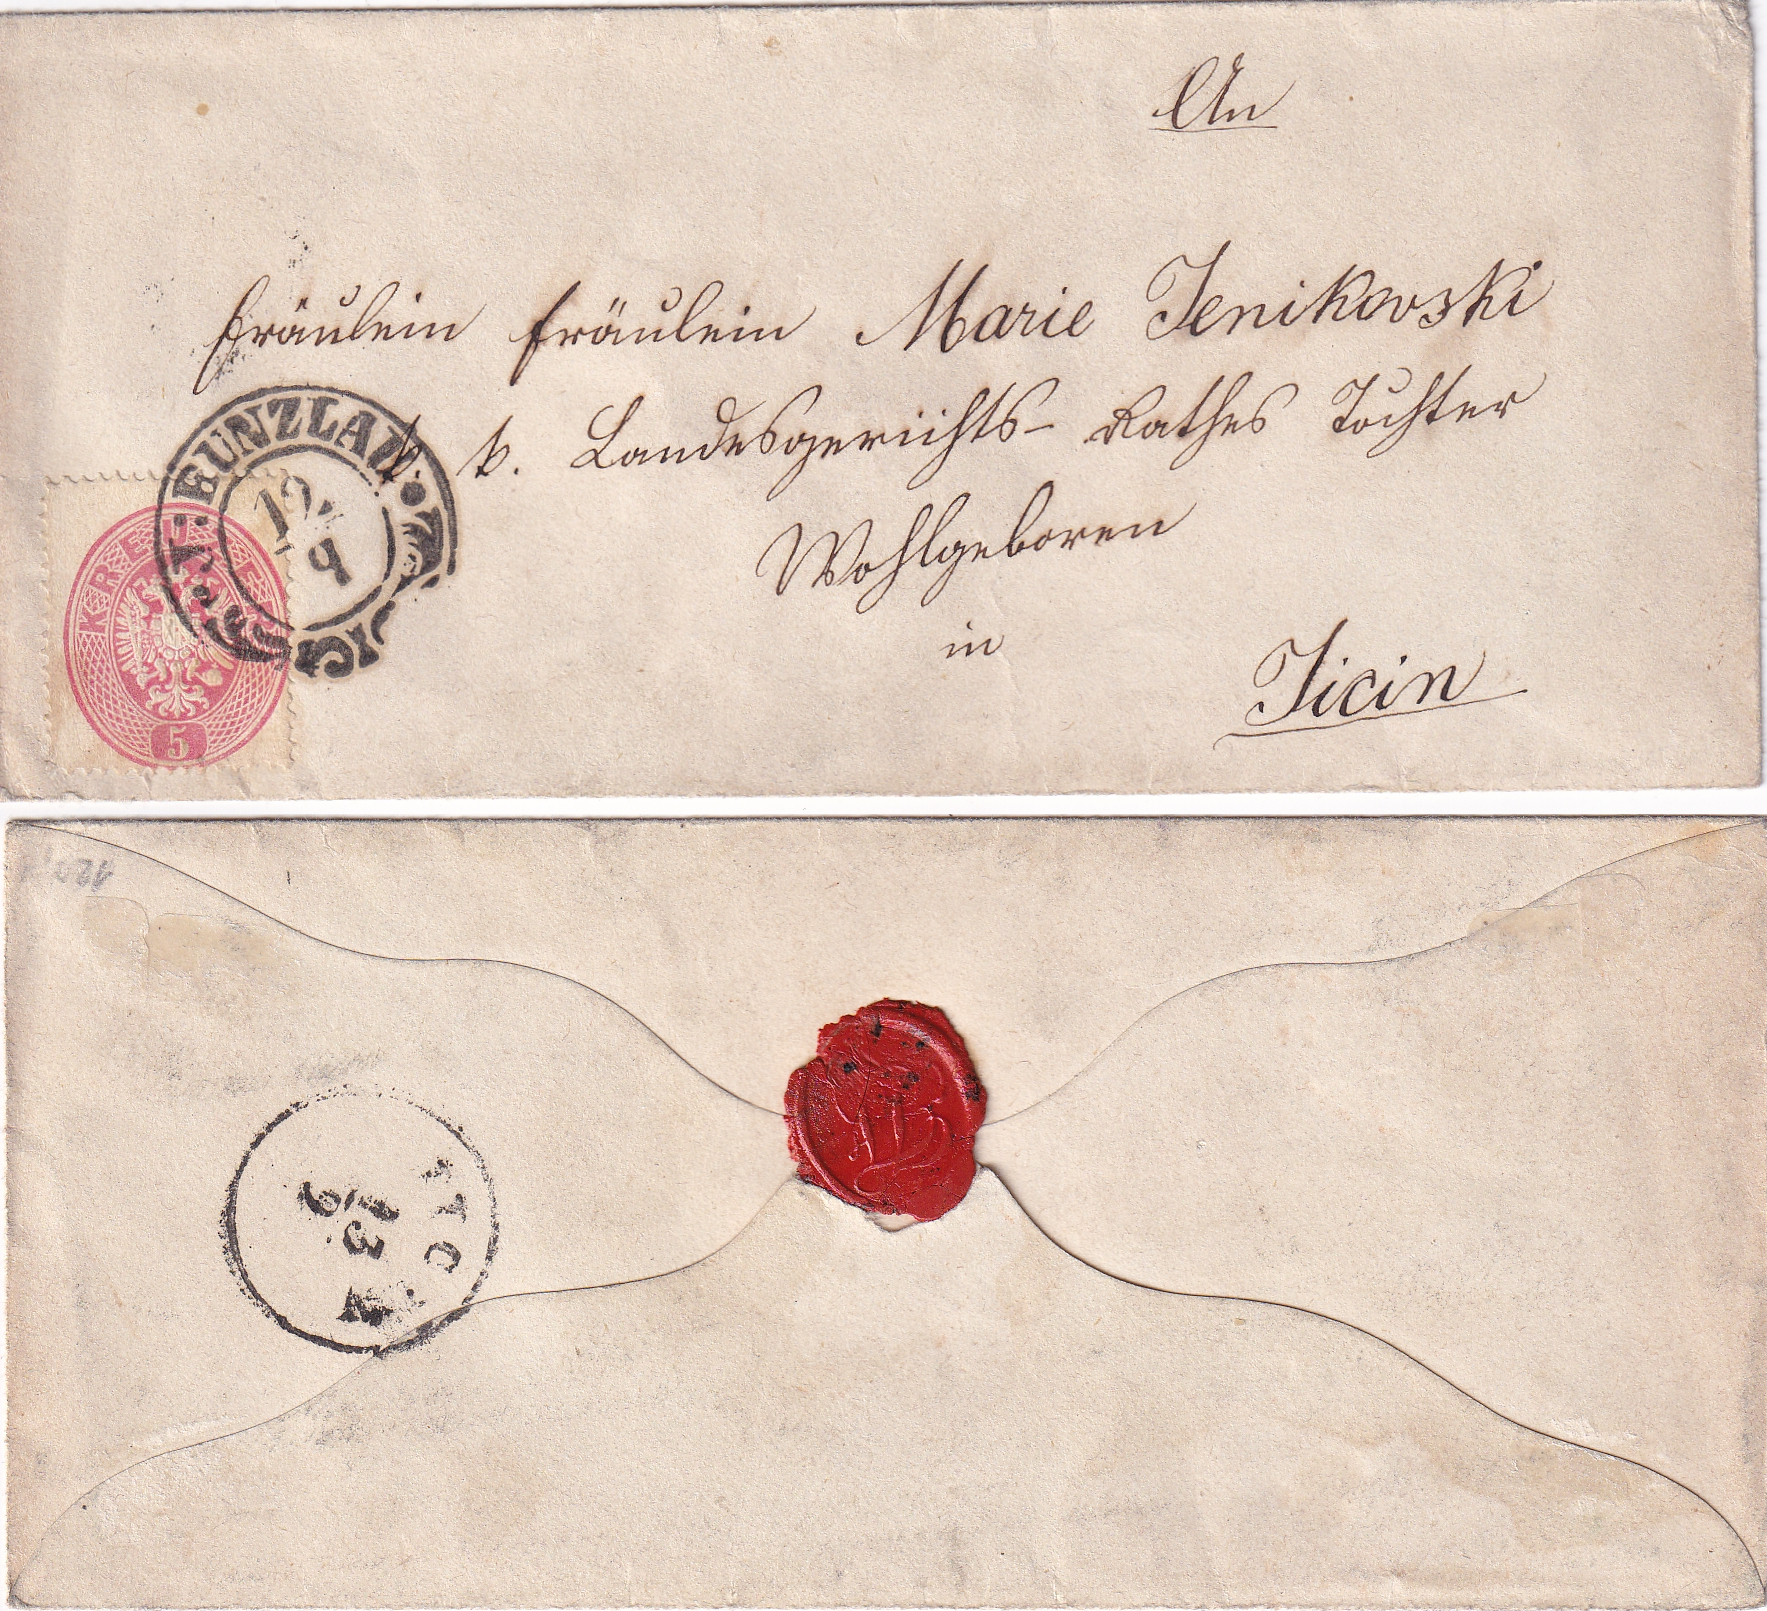 An
Fräulein Fräulein Marie Jenikovski
k. k. Landesgerichts- Rathes Tochter
Wohlgeboren
in
Jicin
JUNG: BUNZLAU.
12/9
KREUZER
5
13
9